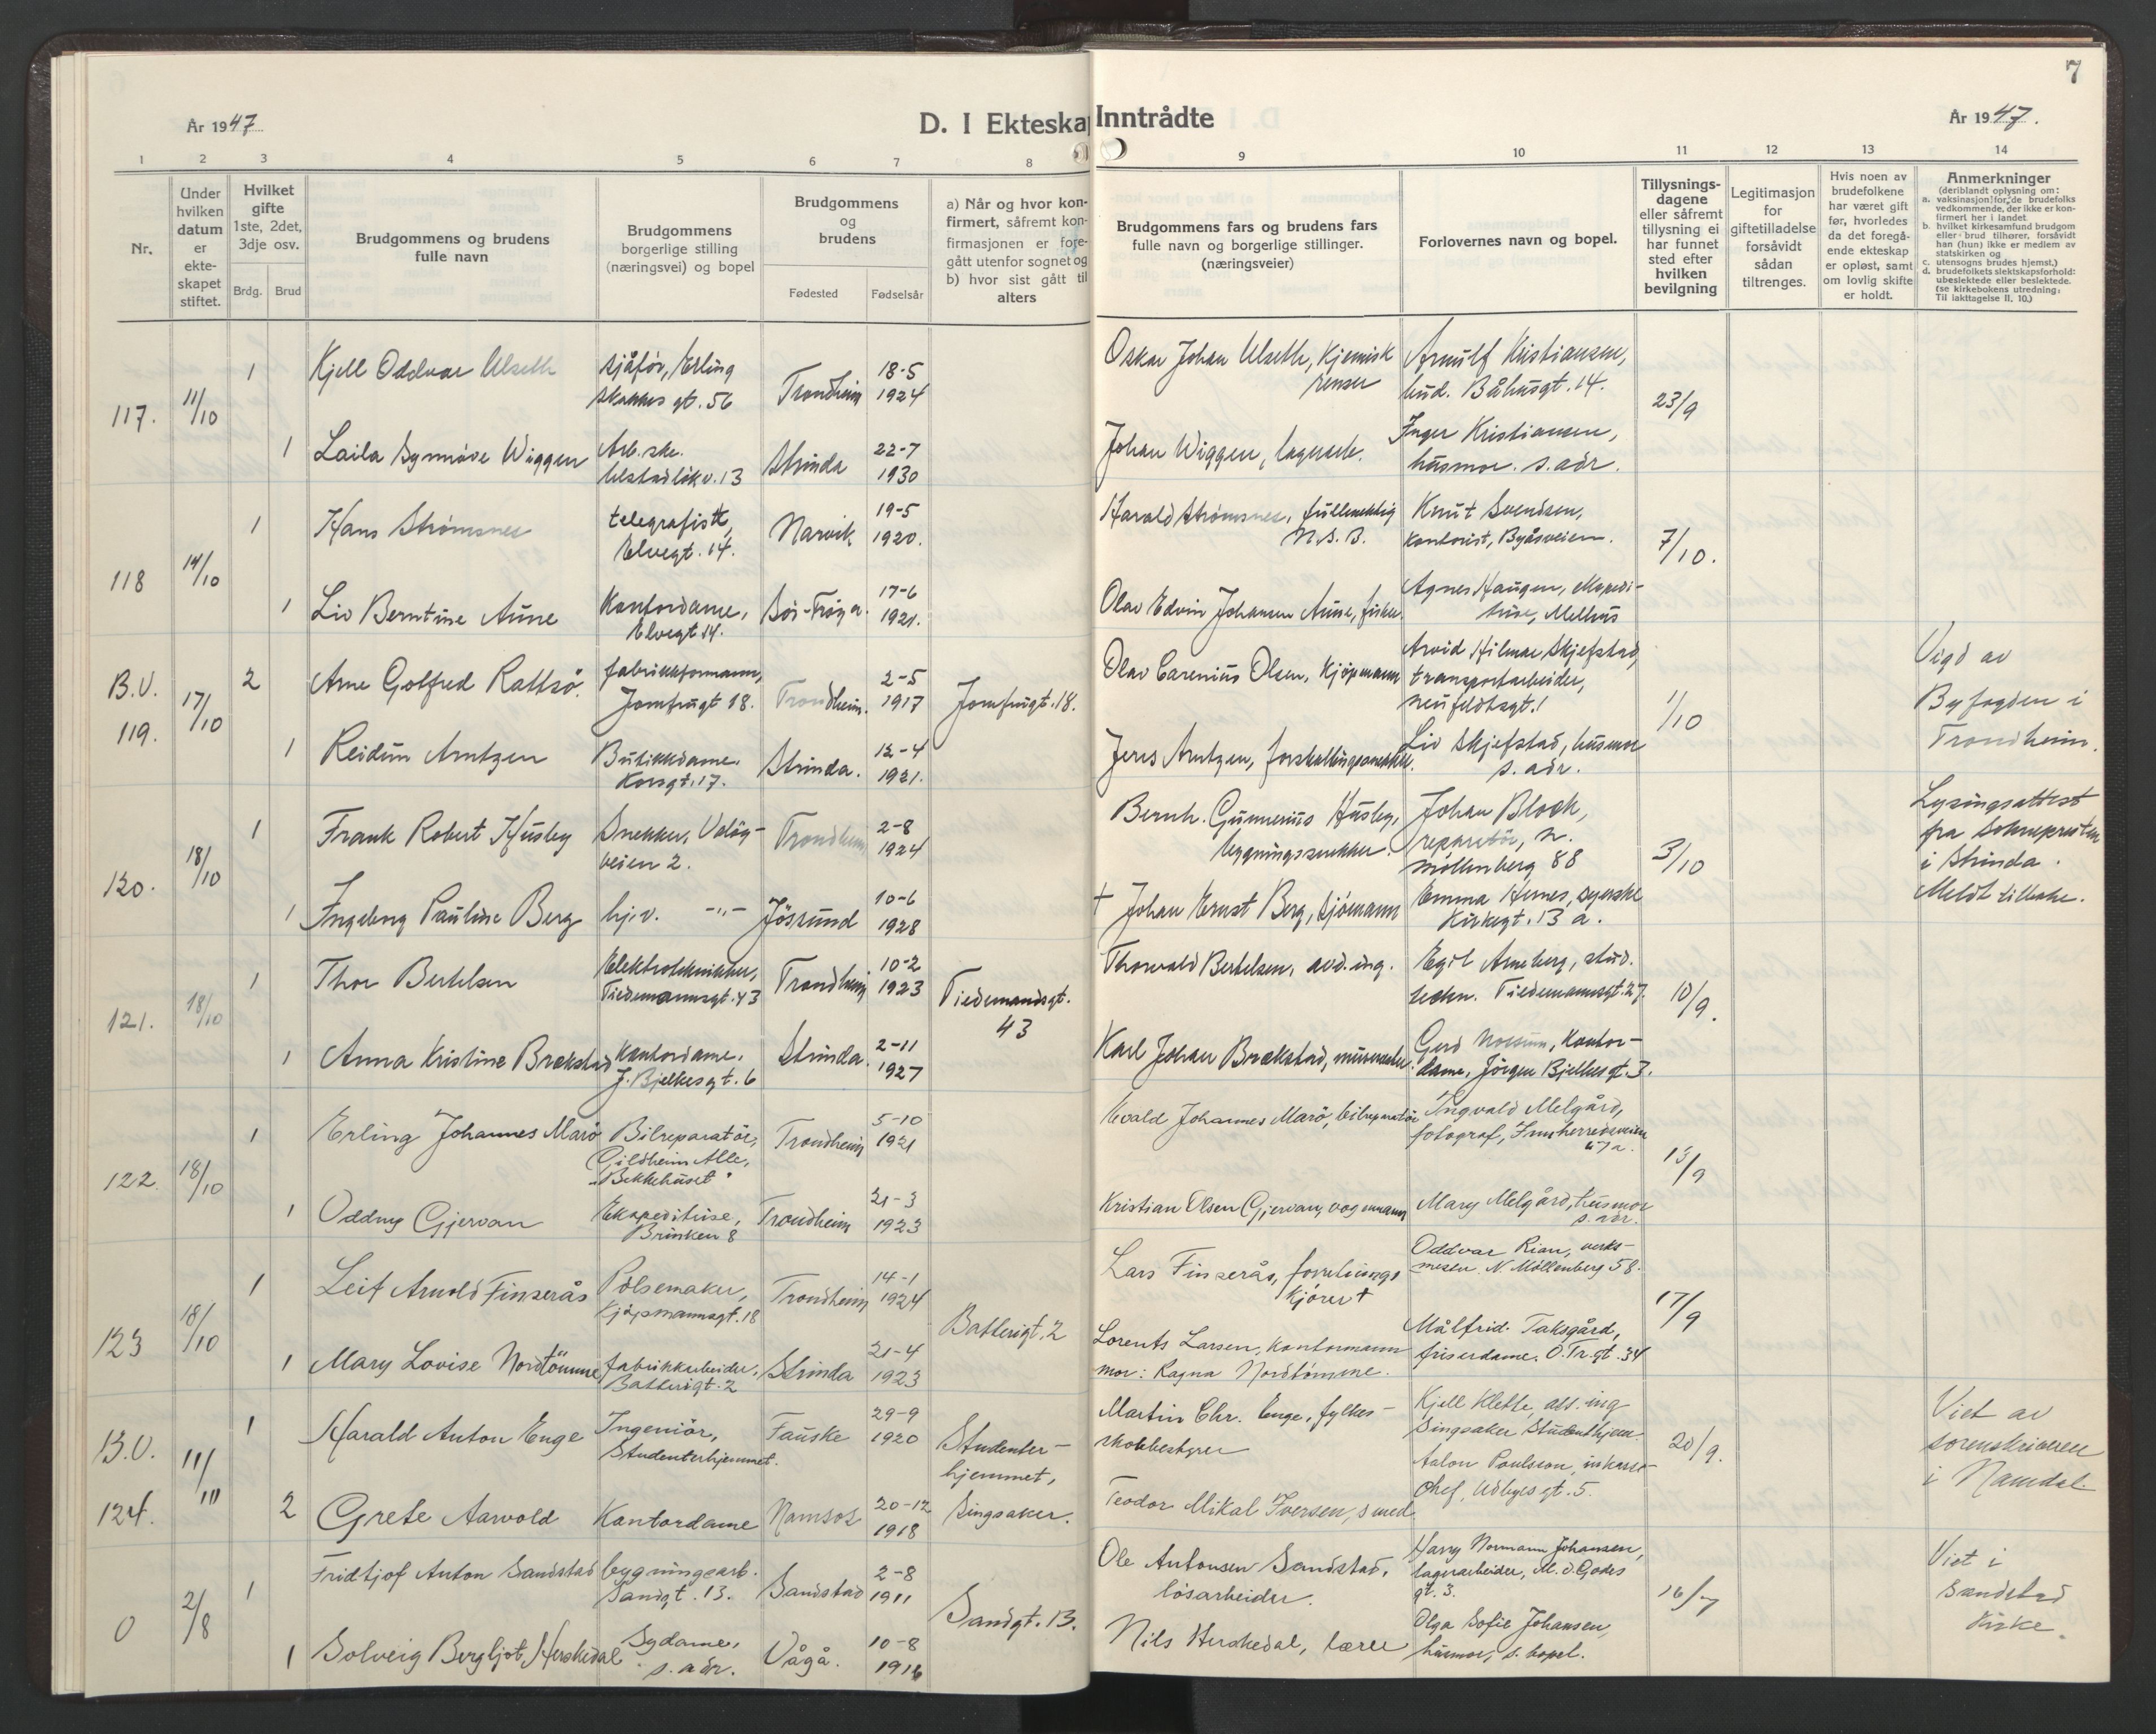 7
År 1947
D. I Ekteskap Inntrådte
År 1947.
1 2 3 4 5 6 7 8 9 10 11 12 13 14
Nr.
Under hvilken datum er ekte-skapet stiftet.
Hvilket gifte 1ste, 2det, 3dje osv.
Brdg. Brud
Brudgommens og brudens fulle navn
Brudgommens borgerlige stilling (næringsvei) og bopel
Brudgommens og brudens
Fødested Fødselsår
a) Når og hvor kon-
firmert, såfremt kon-
firmasjonen er fore-
gått utenfor sognet og
b) hvor sist gått til
alters
Brudgommens fars og brudens fars
fulle navn og borgerlige stillinger.
(næringsveier)
Forlovernes navn og bopel.
Tillysnings-
dagene
eller såfremt
tillysning ei
har funnet
sted efter
hvilken
bevilgning
Legitimasjon
for
giftetilladelse
forsåvidt
sådan
tiltrenges.
Hvis noen av
brudefolkene
har været gift
før, hvorledes
da det foregå-
ende ekteskap
er opløst, samt
om lovlig skifte
er holdt.
Anmerkninger
(deriblandt oplysning om:
a. vaksinasjon for de brudefolks
vedkommende, der ikke er kon-
firmert her i landet
b. hvilket kirkesamfund brudgom
eller brud tilhører, forsåvidt
han (hun) ikke er medlem av
statskirken og
c. utensogns brudes hjemst.)
d. brudefolkets slektskapsforhold:
ubeslektede eller beslektede.
(se kirkebokens utredning:
Til iakttagelse II. 10.)
117. 11/10
1 Kjell Oddvar Ulseth sjåfør, Erling Skakkes gt. 56 Trondheim 18-5 1924
Oskar Johan Ulseth, kjemisk renser
Arnulf Kristiansen, bud. Båhusgt. 14. 23/9
1 Laila Synnøve Wiggen Arb.ske. 13 Strinda 22-7 1930
Johan Wiggen, lagerarb.
Inger Kristiansen, husmor. s. adr.
118 14/10
1 Hans Strømsnes telegrafist, Elvegt. 14. Narvik 19-5 1920.
Harald Strømsnes, fullmektig N.S.B.
Knut Svendsen, kontorist, Byåsveien. 7/10.
1 Liv Berntine Aune Kontordame, Elvegt 14. Sør-Frøya. 17-6 1921.
Olav Edvin Johansen Aune, fisker.
Agnes Haugen, ekspedi-
trise, Melhus
B.V. 119. 17/10
2 Arne Gotfred Rattsø. fabrikkformann, Jomfrugt 18. Trondheim. 2-5 1917 Jomfrugt. 18.
Olav Carenius Olsen, Kjøpmann
Arvid Hilmar Skjefstad, transportarbeider, Neufeldtsgt. 1 1/10
Vigd av
Byfogden i
Trondheim.
1 Reidun Arntzen Butikkdame. Korsgt. 17. Strinda. 12-4 1921.
Jens Arntzen, forskallingssnekker.
Liv Skjefstad, husmor s. adr.
120. 18/10
1 Frank Robert Husby Snekker, Veløy-
veien 2. Trondheim 2-8 1924
Bernh. Gunnerius Husby, bygningssnekker.
Johan Block, reparatør, n. møllenberg 88 3/10
Lysingsattest
fra Soknepresten
i Strinda.
Meldt tilbake.
1 Ingeborg Pauline Berg hj.v. -"- Jøssund 10-6 1928
† Johan Ernst Berg, sjømann
Emma Hernes, syerske Kirkegt. 13 a.
121. 18/10
1 Thor Bertelsen Elektrotekniker, Tiedemannsgt. 43 Trondheim 10-2 1923 Tiedemandsgt. 43
Thorvald Bertelsen, avd. ing.
Egil Arneberg, stud. techn. Tiedemannsgt. 27. 10/9.
1 Anna Kristine Brækstad Kontordame. J. Bjelkesgt. 6 Strinda 2-11 1927
Karl Johan Brækstad, murmester.
Gerd, Kontor-
dame, Jörgen Bjelkesgt. 3.
122. 18/10
1 Erling Johannes Marø Bilreparatør, Gildheim Alle, "Bekkehuset" Trondheim 5-10 1921
Evald Johannes Marø, bilreparatør
Ingvald Melgård, fotograf, Innherredsveien 67 a. 13/9
1 Oddny Gjervan Ekspeditrise, Brinken 8 Trondheim 21-3 1923
Kristian Olsen Gjervan, vognmann
Mary Melgård, husmor s. adr.
123 18/10
1 Leif Arnold Finserås Pølsemaker, Kjøpmannsgt. 18 Trondheim 14-1 1924
Lars Finserås, forretnings
kjører †
Oddvar Rian, verks-
mester N. Møllenberg 58. 17/9
Batterigt. 2
1 Mary Lovise Nordtømme fabrikkarbeider. Batterigt. 2 Strinda 21-4 1923
Lorents Larsen, Kontormann
mor: Ragna Nordtømme.
Målfrid Taksgård, friserdame. O.Tr.gt. 34
B.V. 124. 11/11
1 Harald Anton Enge Ingeniør, Studenterhjemmet. Fauske 29-9 1920 Studenter-
hjemmet, Singsaker.
Martin Chr. Enge, fylkes-
skolebestyrer
Kjell Klette, ass. ing Singsaker Studenthjem. 20/9.
Viet av
sorenskriveren
i Namdal.
2 Grete Aarvold Kontordame Namsos 20-12 1918
Teodor Mikal Iversen, smed
Aalon Poulsson, inkasso-
chef, Udbyesgt. 5.
0 2/8
1 Fridtjof Anton Sandstad bygningsarb. Sandgt. 13. Sandstad 2-8 1911 Sandgt. 13.
Ole Antonsen Sandstad, løsarbeider.
Harry Normann Johansen, lagerarbeider, M. d. Godes gt. 3. 16/7
Viet i
Sandstad
Kirke.
1 Solveig Bergljot Herskedal Sydame, s. adr. Vågå. 10-8 1916
Nils Herskedal, lærer
Olga Sofie Johansen, husmor, s. bopel.